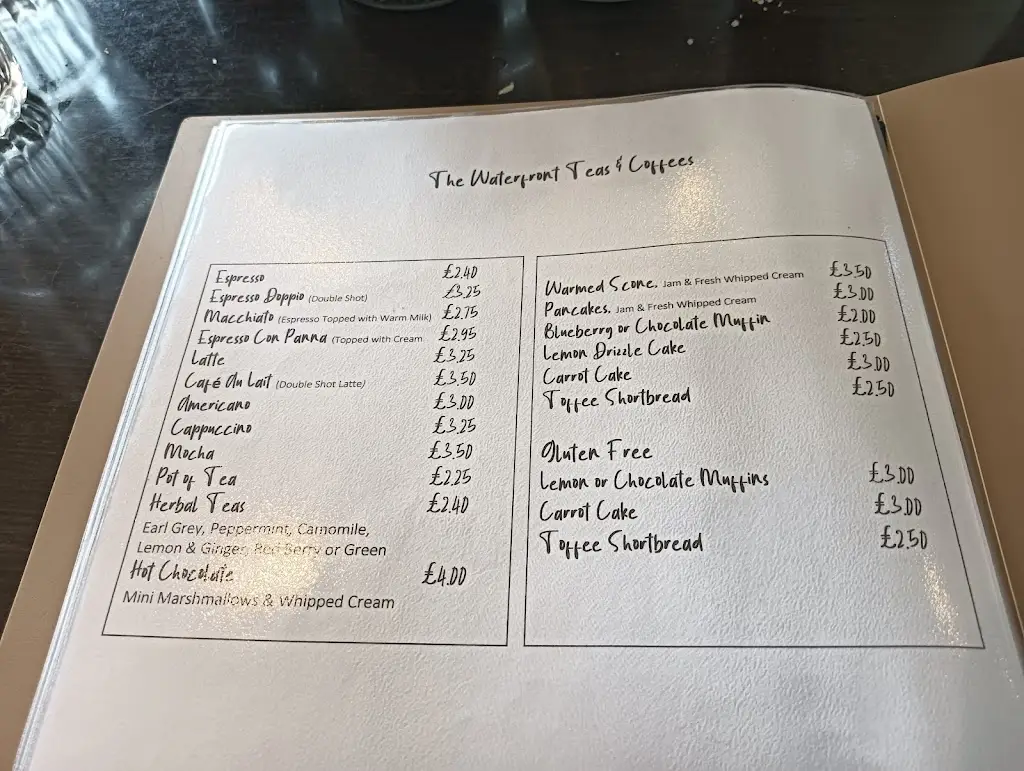 The Waterfront Teas & Coffees
Espresso £2.40
Espresso Doppio (Double Shot) £3.25
Macchiato (Espresso Topped with Warm Milk) £2.75
Espresso Con Panna (Topped with Cream £2.95
Latte £3.25
Café Au Lait (Double Shot Latte) £3.50
Americano £3.00
Cappuccino £3.25
Mocha £3.50
Pot of Tea £2.25
Herbal Teas £2.40
Earl Grey, Peppermint, Camomile,
Lemon & Ginger, Red Berry or Green
Hot Chocolate £4.00
Mini Marshmallows & Whipped Cream
Warmed Scone. Jam & Fresh Whipped Cream £3.50
Pancakes. Jam & Fresh Whipped Cream £3.00
Blueberry or Chocolate Muffin £2.00
Lemon Drizzle Cake £2.50
Carrot Cake £3.00
Toffee Shortbread £2.50
Gluten Free
Lemon or Chocolate Muffins £3.00
Carrot Cake £3.00
Toffee Shortbread £2.50